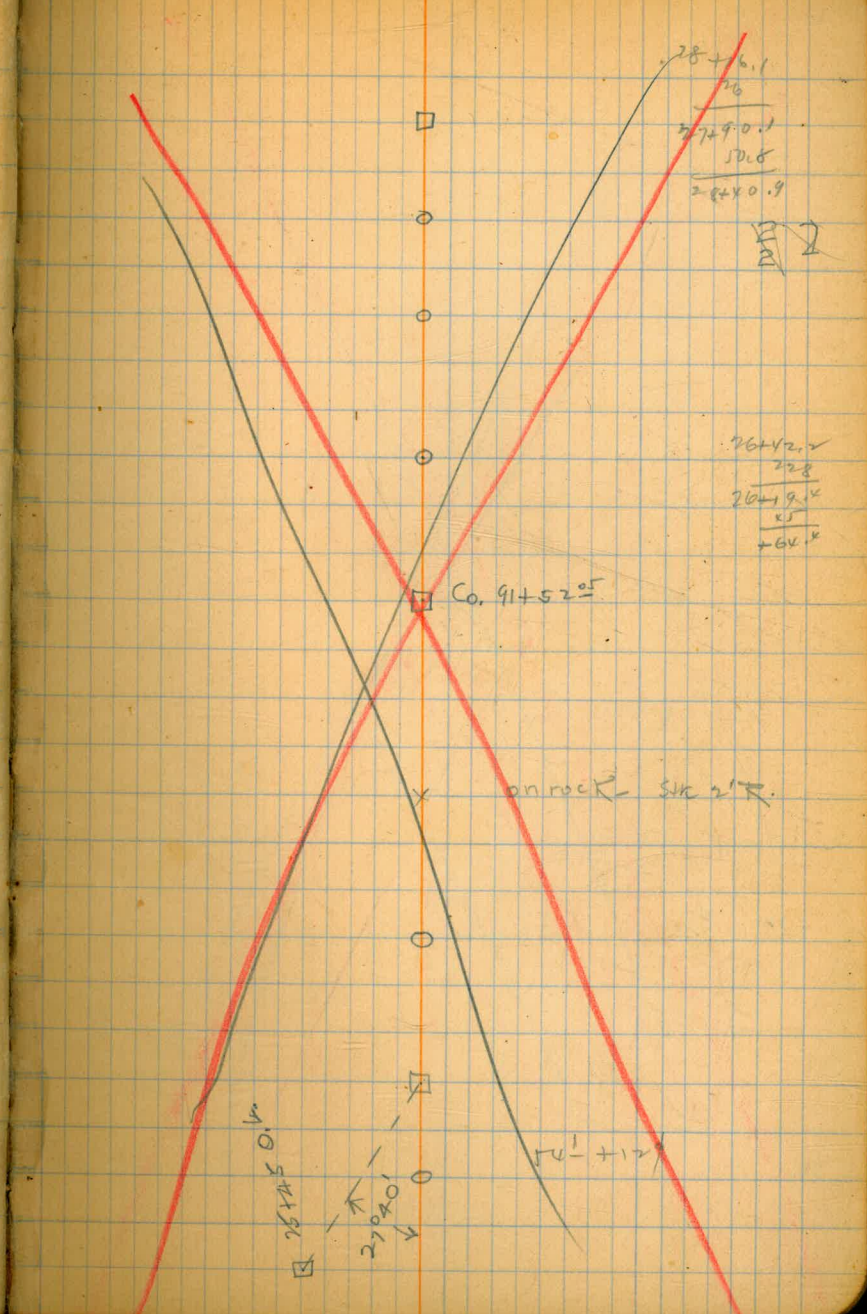 28+16.1
26
27+90.1
50.8
28+40.9
26+42.2
22.8
26+19.4
45
+64.4
Co. 91+52 05
on rock stk 2' R.
54' +12
25+45.0
27°40'